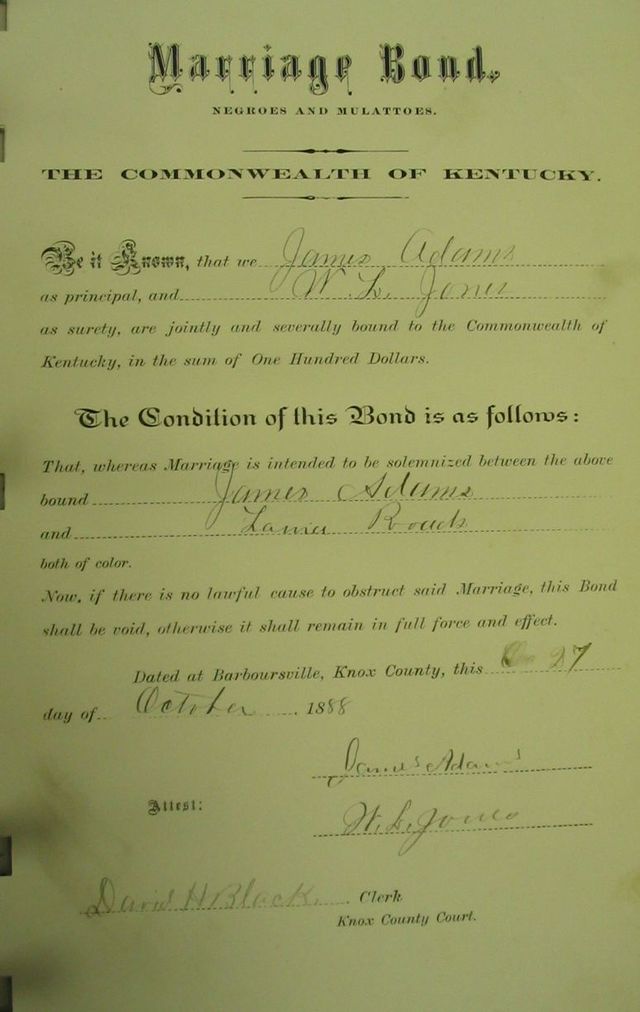 Marriage Bond.
NEGROES AND MULATTOES.
THE COMMONWEALTH OF KENTUCKY.
Be it Known, that we James Adams
as principal, and W. L. Jones
as surety, are jointly and severally bound to the Commonwealth of
Kentucky, in the sum of One Hundred Dollars.
The Condition of this Bond is as follows:
That, whereas Marriage is intended to be solemnized between the above
bound James Adams
and
both of color.
Now, if there is no lawful cause to obstruct said Marriage, this Bond
shall be void, otherwise it shall remain in full force and effect.
Dated at Barboursville, Knox County, this 27
day of October 1888
James Adams
Attest:
W. L. Jones
David H Black Clerk
Knox County Court.